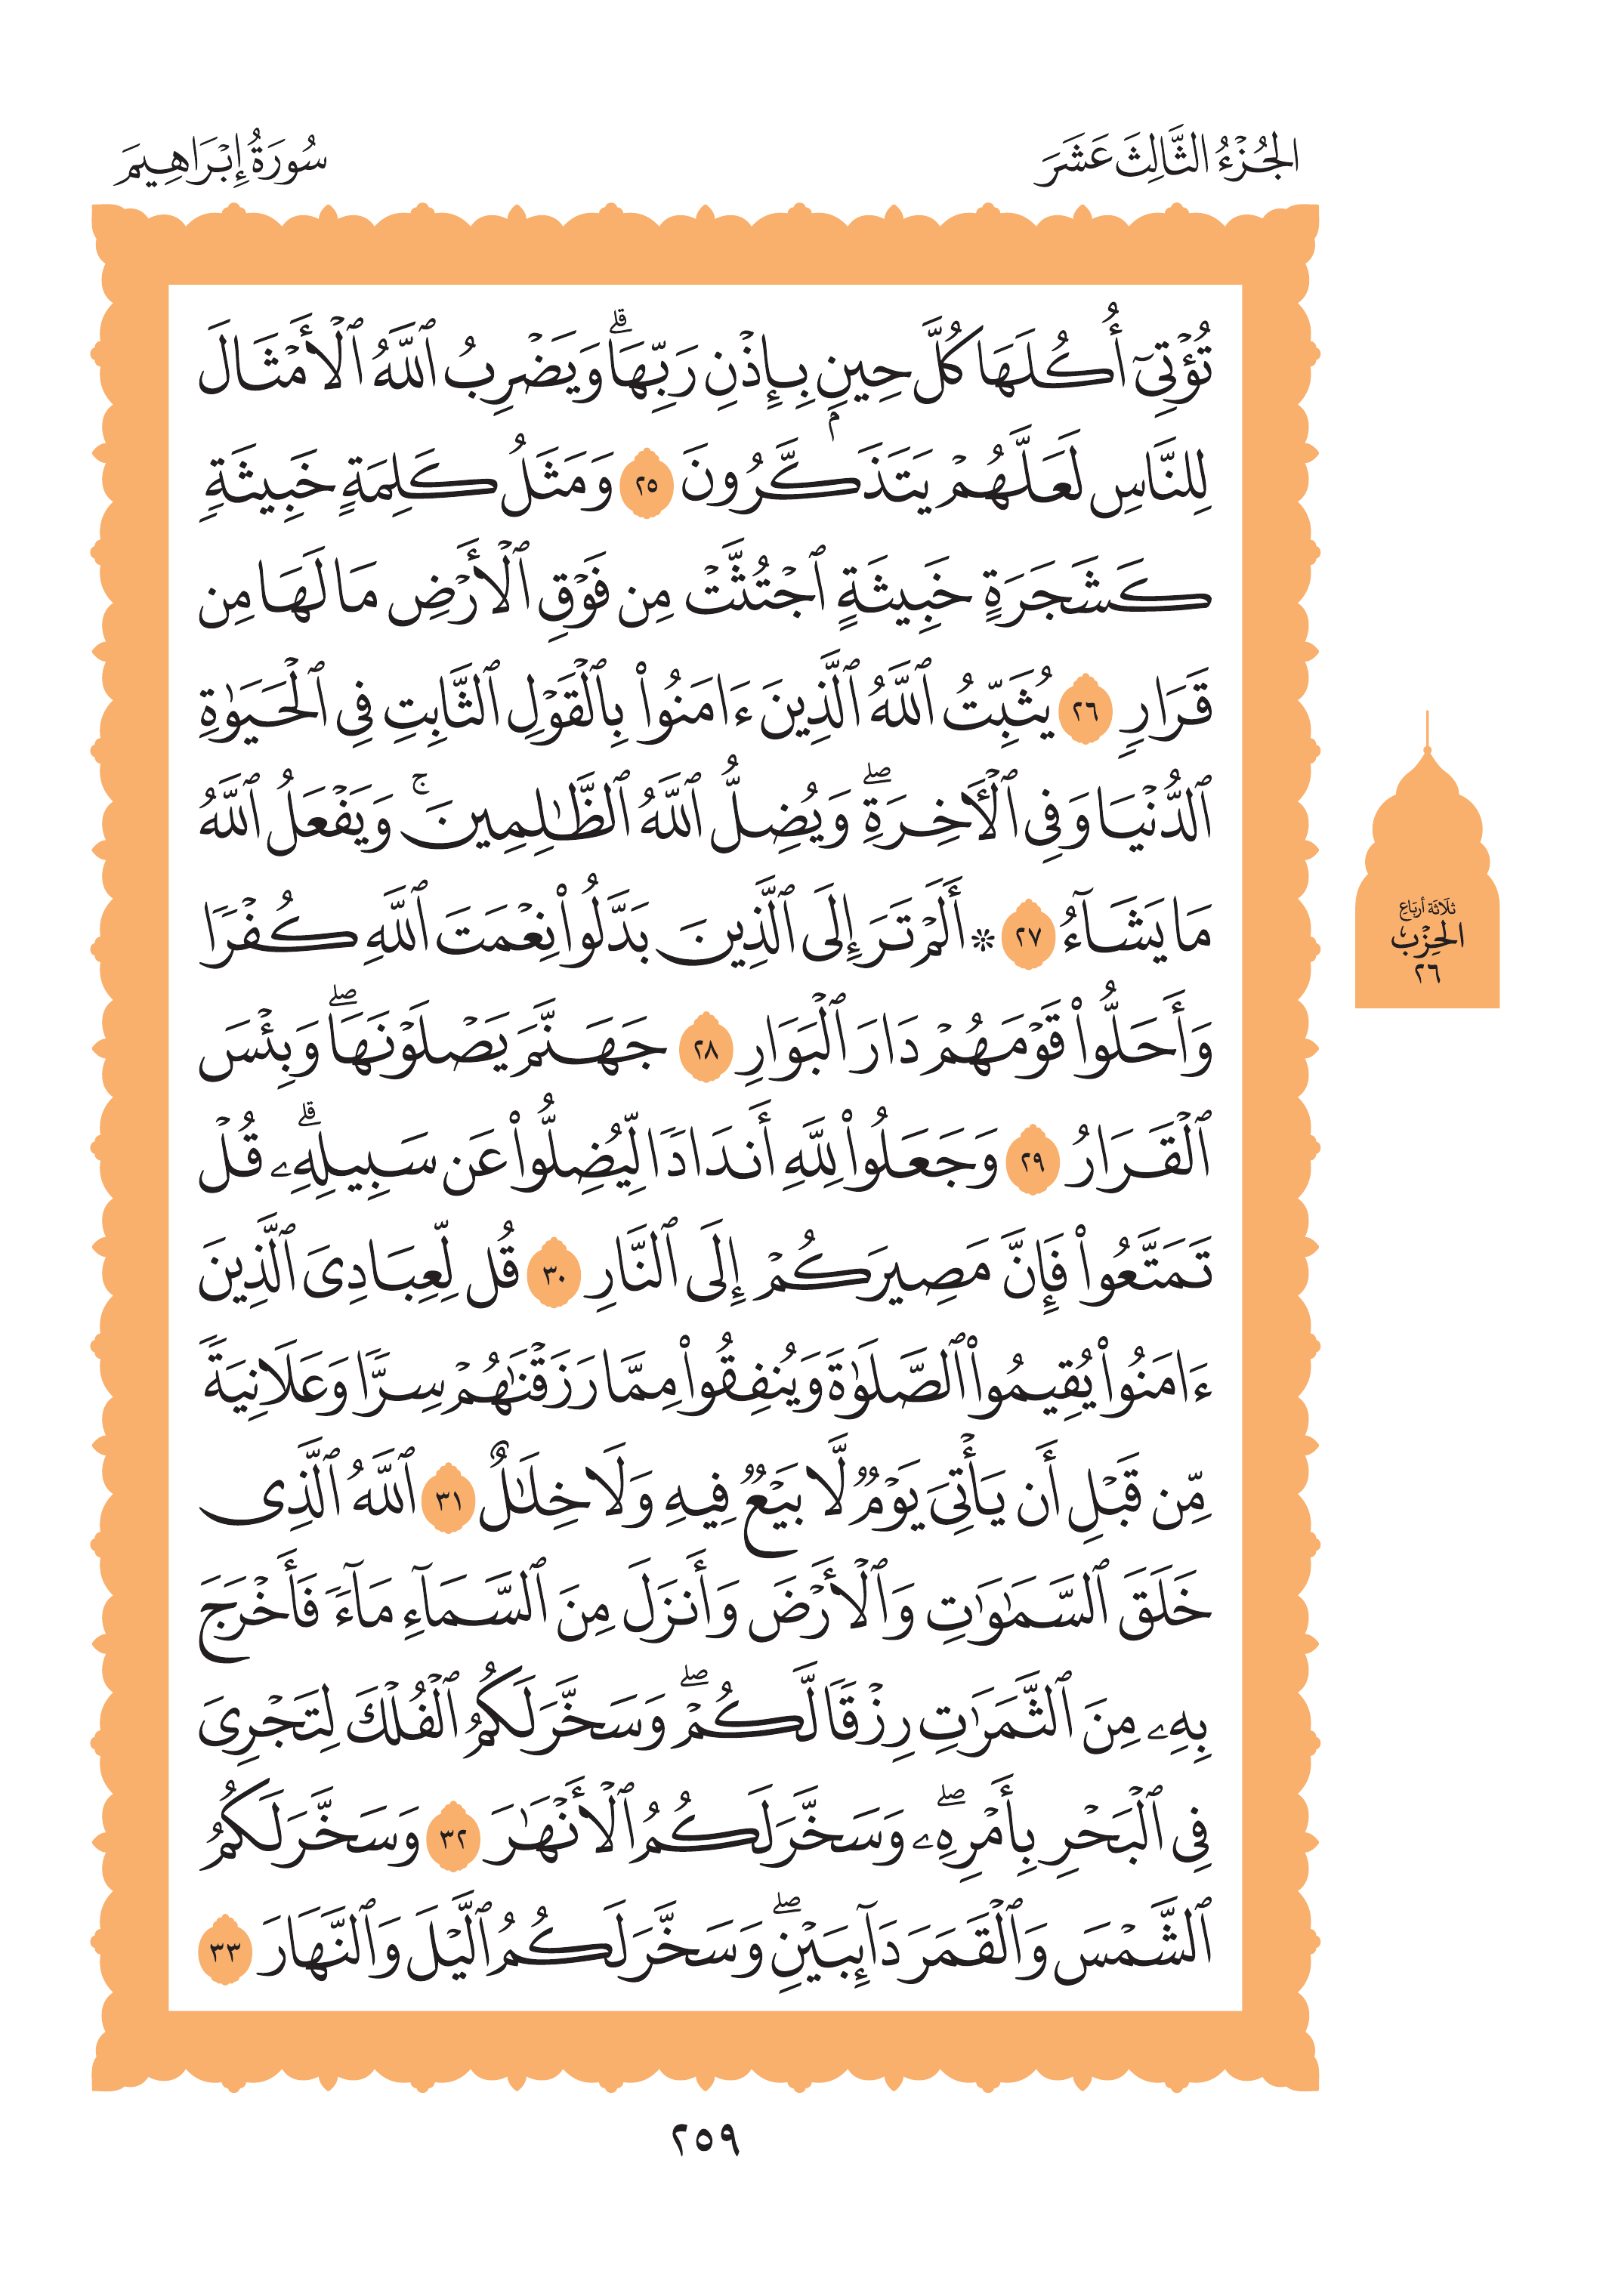 الجُزْءُ الثَّالِثَ عَشَرَ
سُورَةُ إِبْرَاهِيمَ
تُؤْتِىٓ أُكُلَهَا كُلَّ حِينِۭ بِإِذْنِ رَبِّهَاۗ وَيَضْرِبُ ٱللَّهُ ٱلْأَمْثَالَ
لِلنَّاسِ لَعَلَّهُمْ يَتَذَكَّرُونَ ٢٥ وَمَثَلُ كَلِمَةٍ خَبِيثَةٍ
كَشَجَرَةٍ خَبِيثَةٍ ٱجْتُثَّتْ مِن فَوْقِ ٱلْأَرْضِ مَا لَهَا مِن
قَرَارٍ ٢٦ يُثَبِّتُ ٱللَّهُ ٱلَّذِينَ ءَامَنُوا۟ بِٱلْقَوْلِ ٱلثَّابِتِ فِى ٱلْحَيَوٰةِ
ٱلدُّنْيَا وَفِى ٱلْأَخِرَةِۖ وَيُضِلُّ ٱللَّهُ ٱلظَّٰلِمِينَۚ وَيَفْعَلُ ٱللَّهُ
مَا يَشَآءُ ٢٧ ۞ أَلَمْ تَرَ إِلَى ٱلَّذِينَ بَدَّلُوا۟ نِعْمَتَ ٱللَّهِ كُفْرًا
وَأَحَلُّوا۟ قَوْمَهُمْ دَارَ ٱلْبَوَارِ ٢٨ جَهَنَّمَ يَصْلَوْنَهَاۖ وَبِئْسَ
ٱلْقَرَارُ ٢٩ وَجَعَلُوا۟ لِلَّهِ أَندَادًا لِّيُضِلُّوا۟ عَن سَبِيلِهِۦۗ قُلْ
تَمَتَّعُوا۟ فَإِنَّ مَصِيرَكُمْ إِلَى ٱلنَّارِ ٣٠ قُل لِّعِبَادِىَ ٱلَّذِينَ
ءَامَنُوا۟ يُقِيمُوا۟ ٱلصَّلَوٰةَ وَيُنفِقُوا۟ مِمَّا رَزَقْنَٰهُمْ سِرًّا وَعَلَانِيَةً
مِّن قَبْلِ أَن يَأْتِىَ يَوْمٌ لَّا بَيْعٌ فِيهِ وَلَا خِلَٰلٌ ٣١ ٱللَّهُ ٱلَّذِى
خَلَقَ ٱلسَّمَٰوَٰتِ وَٱلْأَرْضَ وَأَنزَلَ مِنَ ٱلسَّمَآءِ مَآءً فَأَخْرَجَ
بِهِۦ مِنَ ٱلثَّمَرَٰتِ رِزْقًا لَّكُمْۖ وَسَخَّرَ لَكُمُ ٱلْفُلْكَ لِتَجْرِىَ
فِى ٱلْبَحْرِ بِأَمْرِهِۦۖ وَسَخَّرَ لَكُمُ ٱلْأَنْهَٰرَ ٣٢ وَسَخَّرَ لَكُمُ
ٱلشَّمْسَ وَٱلْقَمَرَ دَآئِبَيْنِۖ وَسَخَّرَ لَكُمُ ٱلَّيْلَ وَٱلنَّهَارَ ٣٣
ثلَاثَة أربَاعِ
الحِزْب
٢٦
٢٥٩